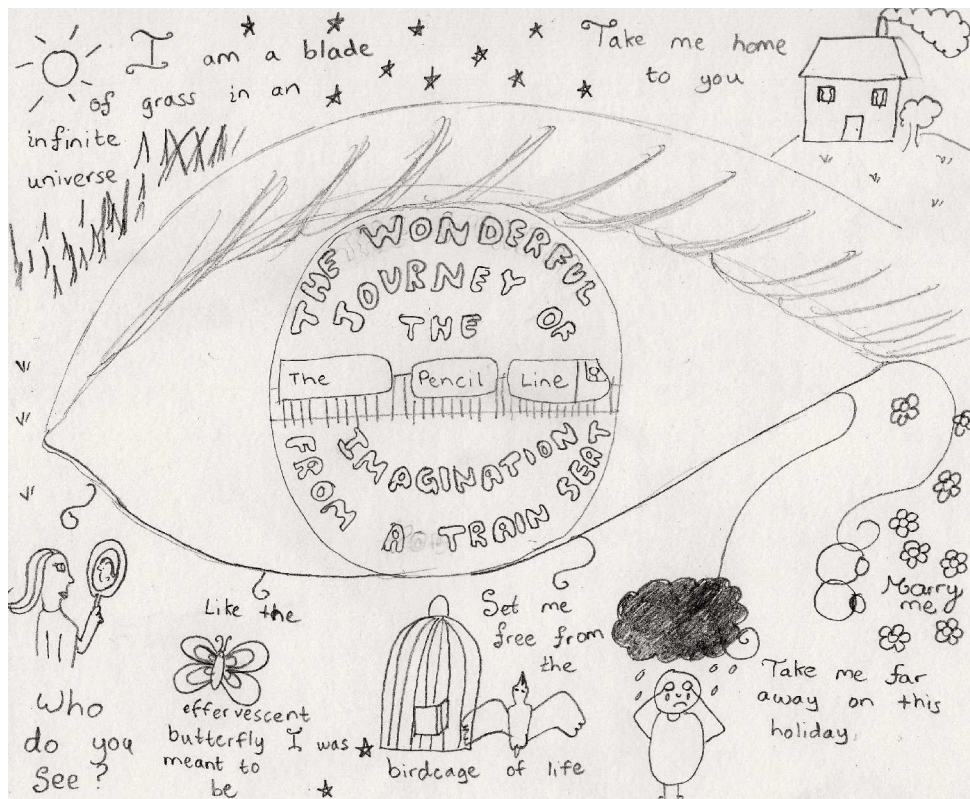 I am a blade
of grass in an
infinite
universe
Take me home
to you
THE WONDERFUL
JOURNEY OF
THE
The Pencil Line
IMAGINATION
FROM A TRAIN SEAT
Who
do you
See?
Like the
effervescent
butterfly I was
meant to
be
Set me
free from
the
birdcage of life
Take me far
away on this
holiday
Marry
me